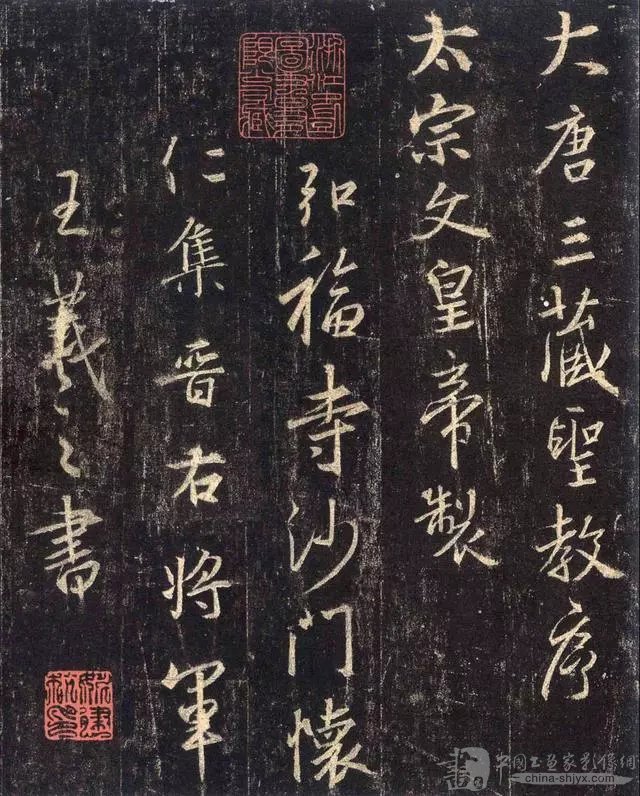 大唐三藏聖教序
太宗文皇帝製
弘福寺沙門懷
仁集晋右將軍
王羲之書
中国书画家影像網
china-shjyx.com